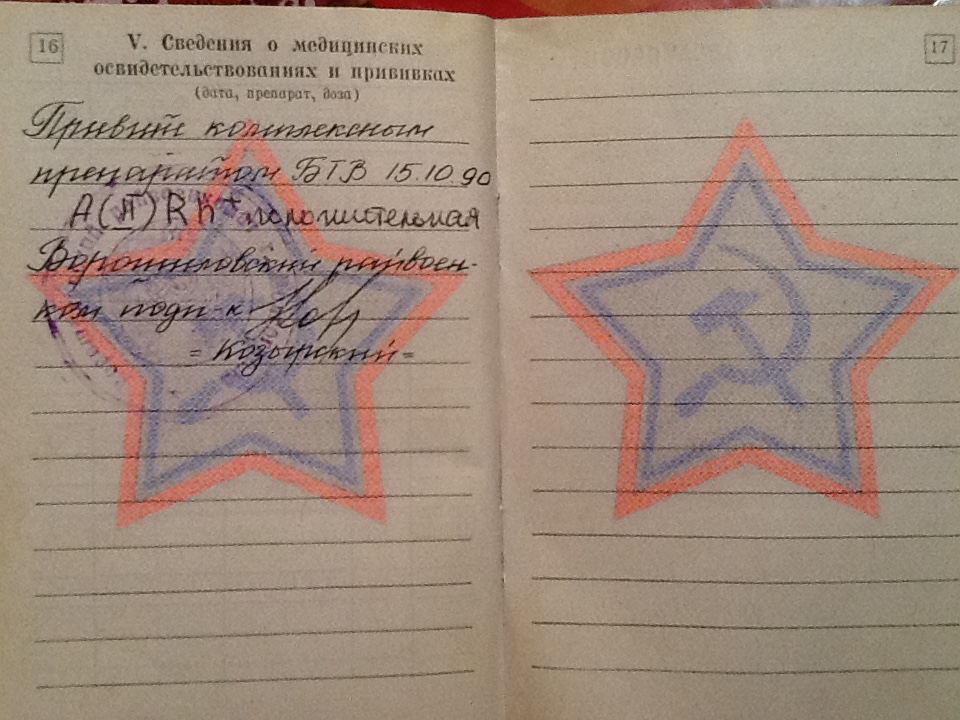 16
V. Сведения о медицинских
освидетельствованиях и прививках
(дата, препарат, доза)
Привит комплексным
препаратом БТВ 15.10.90
A(II) Rh+ положительная
Ворошиловский райвоен-
ком подп-к
= Козырский =
17